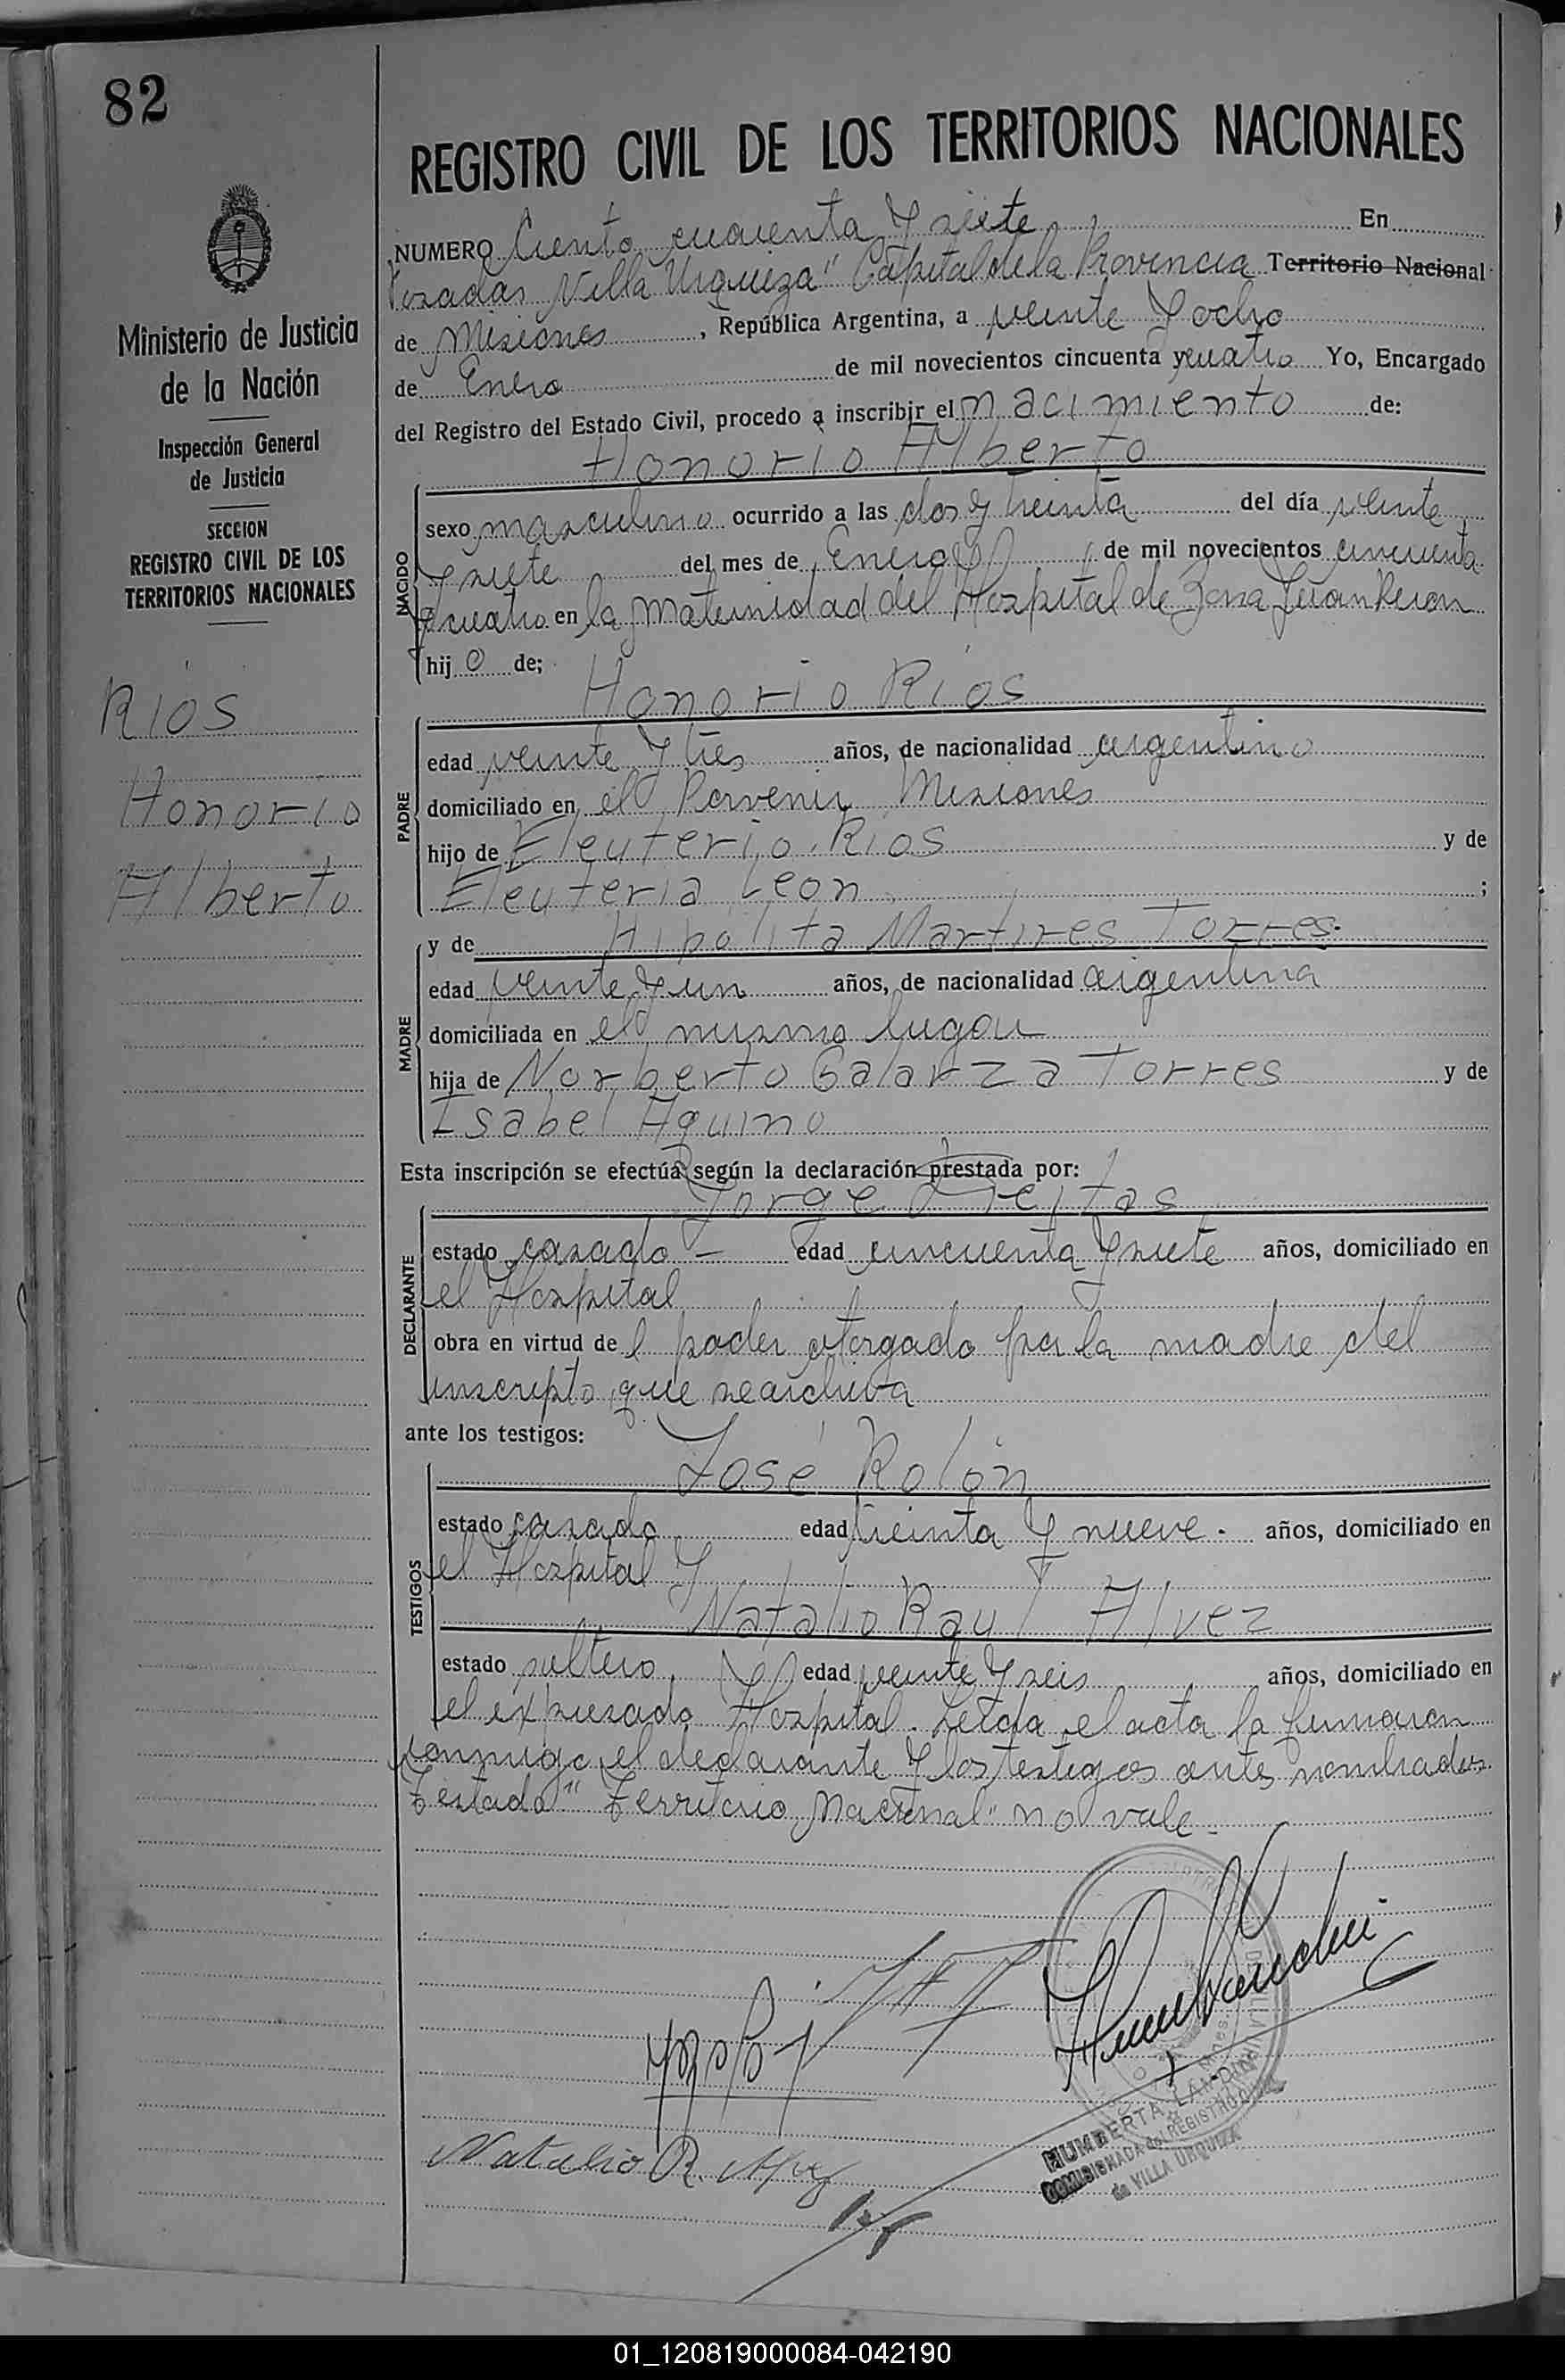 82
REGISTRO CIVIL DE LOS TERRITORIOS NACIONALES
Ministerio de Justicia
de la Nación
Inspección General
de Justicia
SECCION
REGISTRO CIVIL DE LOS
TERRITORIOS NACIONALES
Rios
Honorio
Alberto
NUMERO Ciento cuarenta y siete En
Posadas Villa Urquiza" Capital de la Provincia Territorio Nacional
de Misiones, República Argentina, a veinte y ocho
de Enero de mil novecientos cincuenta y cuatro Yo, Encargado
del Registro del Estado Civil, procedo a inscribir el nacimiento de:
Honorio Alberto
NACIDO
sexo masculino ocurrido a las dos y treinta del día veinte
y siete del mes de Enero de mil novecientos cincuenta
y cuatro en la Maternidad del Hospital de Zona Juan Peron
hijo de;
Honorio Rios
PADRE
edad veinte y tres años, de nacionalidad argentino
domiciliado en el Porvenir Misiones
hijo de Eleuterio Rios y de
Eleuteria Leon ;
y de Hipolita Martires Torres.
MADRE
edad veinte y un años, de nacionalidad argentina
domiciliada en el mismo lugar
hija de Norberto Galarza Torres y de
Isabel Aquino
Esta inscripción se efectúa según la declaración prestada por:
Jorge Freitas
DECLARANTE
estado casado - edad cincuenta y siete años, domiciliado en
el Hospital
obra en virtud del poder otorgado por la madre del
inscripto que se archiva
ante los testigos:
José Rolón
TESTIGOS
estado casado edad treinta y nueve. años, domiciliado en
el Hospital y
Natalio Raul Alvez
estado soltero, edad veinte y seis años, domiciliado en
el expresado Hospital. Leida el acta la firmaron
conmigo el declarante y los testigos antes nombrados.
Testado "Territorio Nacional" no vale.
Natalio R. Alvez
HUMBERTA LANDINI
COMISIONADA del REGISTRO CIVIL
de VILLA URQUIZA
01_120819000084-042190